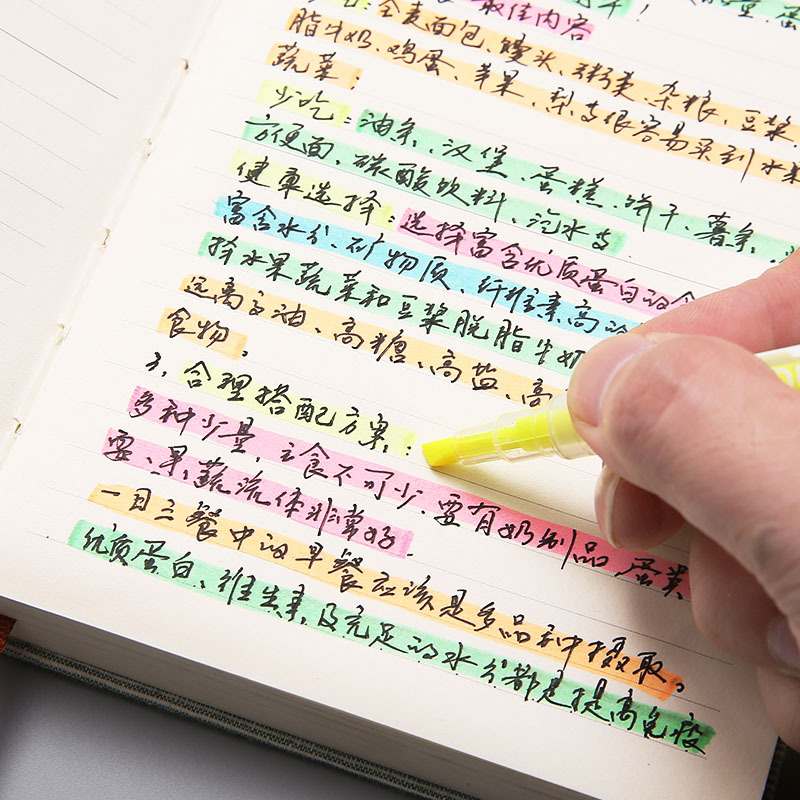 最佳内容
：全麦面包、馒头、粥类、杂粮、豆浆、
脂牛奶、鸡蛋、苹果、梨等很容易买到水果
蔬菜；
少吃：油条、汉堡、蛋糕、饼干、薯条、
方便面、碳酸饮料、汽水等
健康选择：选择富含优质蛋白的食
富含水分、矿物质、纤维素高的
择水果蔬菜和豆浆脱脂牛奶
远离高油、高糖、高盐、高
食物。
3、合理搭配方案：
多种少量，主食不可少，要有奶制品 蛋类
要、果、蔬流体非常好.
一日三餐中的早餐应该是多品种摄取。
优质蛋白、维生素，及充足的水分都是提高免疫